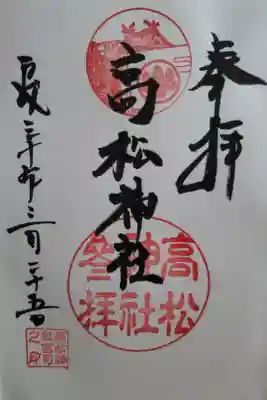 奉拝
高松神社
平成二十九年三月二十五日
高松
神社
参拝